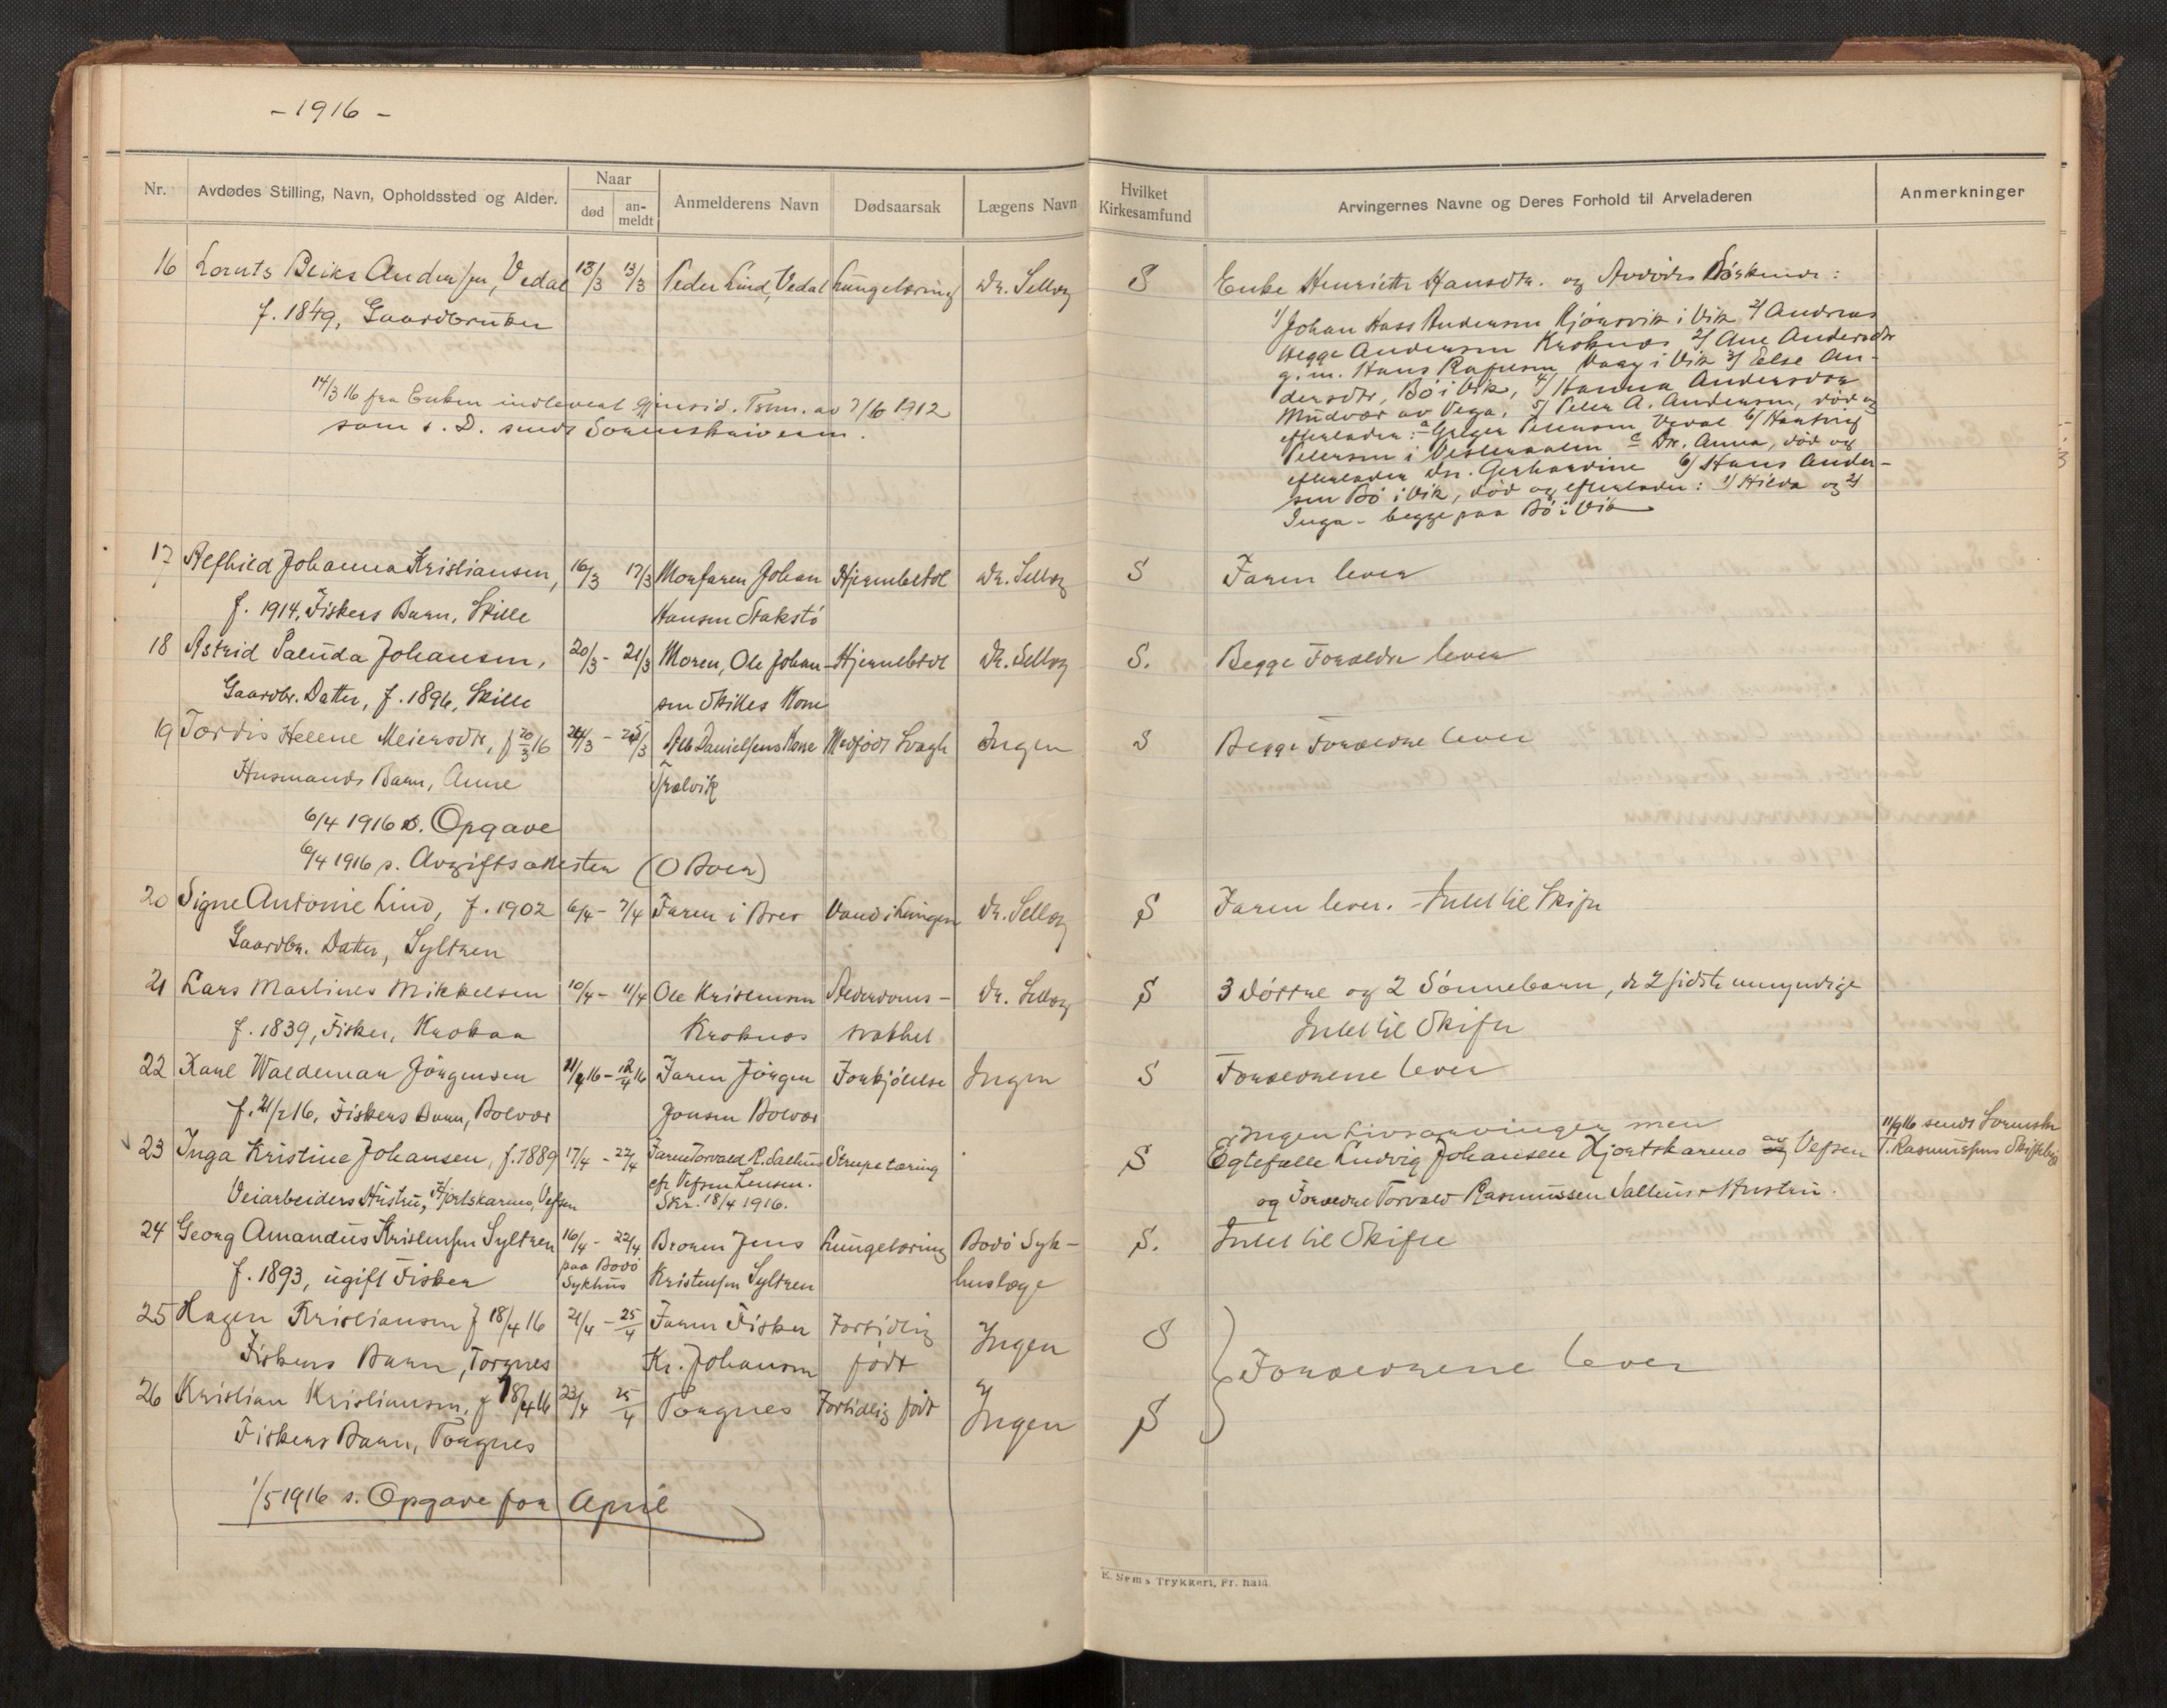 - 1916 -
Nr.
Avdødes Stilling, Navn, Opholdssted og Alder.
Naar
død
an-
meldt
Anmelderens Navn
Dødsaarsak
Lægens Navn
Hvilket
Kirkesamfund
Arvingernes Navne og Deres Forhold til Arveladeren
Anmerkninger
16 Lornts Beiks Andersen, Vedal 13/3 13/3 Peder Lind, Vedal Lungetæring Dr. Selbog S Enke Henriette Hansdtr. og Avdødes Søskende:
f. 1849, Gaardbruker
1/ Johan Hass Andersen Kjønsvik i Vik 2/ Andreas
Hegge Andersen Kroknes 2/ Ane Andersdtr
g.m. Hans Rafusen Vaag i Vik 3/ Else An-
dersdtr, Bø i Vik, 4/ Hanna Andersdtr
Mudvær av Vega, 5/ Peter A. Andersen, død og
efterlader: a Petersen Vedal b/
Petersen i Vesteraalen c Dtr. Anna, død og
efterlader Dtr. Gerhardine 6/ Hans Ander-
sen Bø i Vik, død og efterlader: 1/ Hilda og 2/
Inga - begge paa Bø i Vik
14/3 16 fra Enken indleveret gjensid. Testm. av 7/6 1912
som s. D. sendt Sorenskriveren.
17 Alfhild Johanna Kristiansen, 16/3 17/3 Morfaren Johan Hjernebetæ Dr. Selbog S Faren lever
f. 1914, Fiskers Barn, Skille Hansen Stakstø
18 Astrid Paluda Johansen, 20/3 - 21/3 Moren, Ole Johan- Hjernebetæ Dr. Selbog S. Begge Forældre lever
Gaardbr. Datter, f. 1896, Skille sen Skilles Kone
19 Tordis Helene Meiersdtr, f 20/3 16 24/3 - 25/3 Alb Danielsens Kone Medfødt Svagh Ingen S Begge Forældre lever
Husmands Barn, Aune Trælvik
6/4 1916 s. Opgave
6/4 1916 s. Avgiftsattesten (O Boer)
20 Signe Antonie Lind, f. 1902 6/4 - 7/4 Faren i Brev Vand i Lungen Dr. Selbog S Faren lever. - Intet til Skifte
Gaardbr. Datter, Syltren
21 Lars Martines Mikkelsen 10/4 - 11/4 Ole Kristensen Alderdoms- Dr. Selbog S 3 Døttre og 2 Sønnebarn, de 2 sidste umyndige
f. 1839, Fisker, Krokaa Kroknes svakhet Intet til Skifte
22 Karl Waldemar Jørgensen 11/4 16 - 12/4 16 Faren Jørgen Forkjølelse Ingen S Forældrene lever
f. 21/2 16, Fiskers Barn, Bolvær Jonsen Bolvær
Ingen Livsarvinger men 11/9 16 sendt Sorenskr
23 Inga Kristine Johansen, f. 1889 17/4 - 22/4 Faren Torvald R. Salhus Strupetæring S Egtefælle Ludvig Johansen Hjortskarmo av Vefsen T. Rasmussens Skiftebeg
Veiarbeiders Hustru, Hjortskarmo, Vefsen efr Vefsen Lensm. Skr. 18/4 1916. og Forældre Torvald Rasmussen Salhus + Hustru.
24 Georg Amandus Kristensen Syltren 16/4 - 22/4 Broren Jens Lungetæring Bodø Syk- S. Intet til Skifte
f. 1893, ugift Fisker paa Bodø Sykhus Kristensen Syltren huslæge
25 Hagen Kristiansen f 18/4 16 21/4 - 25/4 Faren Fisker Fortidlig Ingen S
Fiskers Barn, Torgnes Kr. Johansen født
Forældrene lever
26 Kristian Kristiansen, f 18/4 16 23/4 25/4 Torgnes Fortidlig født Ingen S
Fiskers Barn, Torgnes
1/5 1916 s. Opgave for April
E. Sem's Trykkeri, Fr. hald